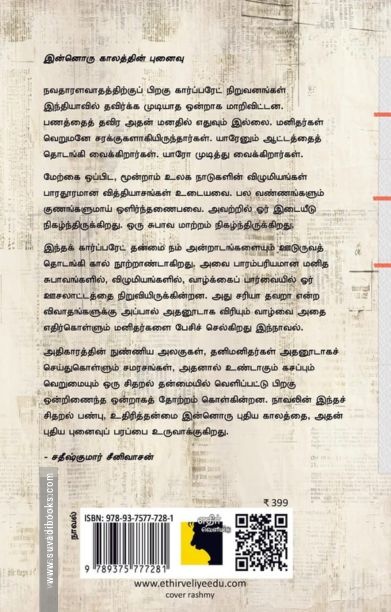 இன்னொரு காலத்தின் புனைவு
நவதாராளவாதத்திற்குப் பிறகு கார்ப்பரேட் நிறுவனங்கள்
இந்தியாவில் தவிர்க்க முடியாத ஒன்றாக மாறிவிட்டன.
பணத்தைத் தவிர அதன் மனதில் எதுவும் இல்லை. மனிதர்கள்
வெறுமனே சரக்குகளாகியிருந்தார்கள். யாரேனும் ஆட்டத்தைத்
தொடங்கி வைக்கிறார்கள். யாரோ முடித்து வைக்கிறார்கள்.
மேற்கை ஒப்பிட, மூன்றாம் உலக நாடுகளின் விழுமியங்கள்
பாரதூரமான வித்தியாசங்கள் உடையவை. பல வண்ணங்களும்
குணங்களுமாய் ஒளிர்ந்தணைபவை. அவற்றில் ஓர் இடையீடு
நிகழ்ந்திருக்கிறது. ஒரு சுபாவ மாற்றம் நிகழ்ந்திருக்கிறது.
இந்தக் கார்ப்பரேட் தன்மை நம் அன்றாடங்களையும் ஊடுருவத்
தொடங்கி கால் நூற்றாண்டாகிறது, அவை பாரம்பரியமான மனித
சுபாவங்களில், விழுமியங்களில், வாழ்க்கைப் பார்வையில் ஓர்
ஊசலாட்டத்தை நிறுவியிருக்கின்றன. அது சரியா தவறா என்ற
விவாதங்களுக்கு அப்பால் அதனூடாக விரியும் வாழ்வை அதை
எதிர்கொள்ளும் மனிதர்களை பேசிச் செல்கிறது இந்நாவல்.
அதிகாரத்தின் நுண்ணிய அலகுகள், தனிமனிதர்கள் அதனூடாகச்
செய்துகொள்ளும் சமரசங்கள், அதனால் உண்டாகும் கசப்பும்
வெறுமையும் ஒரு சிதறல் தன்மையில் வெளிப்பட்டு பிறகு
ஒன்றிணைந்த ஒன்றாகத் தோற்றம் கொள்கின்றன. நாவலின் இந்தச்
சிதறல் பண்பு, உதிரித்தன்மை இன்னொரு புதிய காலத்தை, அதன்
புதிய புனைவுப் பரப்பை உருவாக்குகிறது.
- சதீஷ்குமார் சீனிவாசன்
www.suvadibooks.com
₹ 399
நாவல்
ISBN: 978-93-7577-728-1
9 789375 777281
எதிர்
வெளியீடு
www.ethirveliyeedu.com
cover rashmy